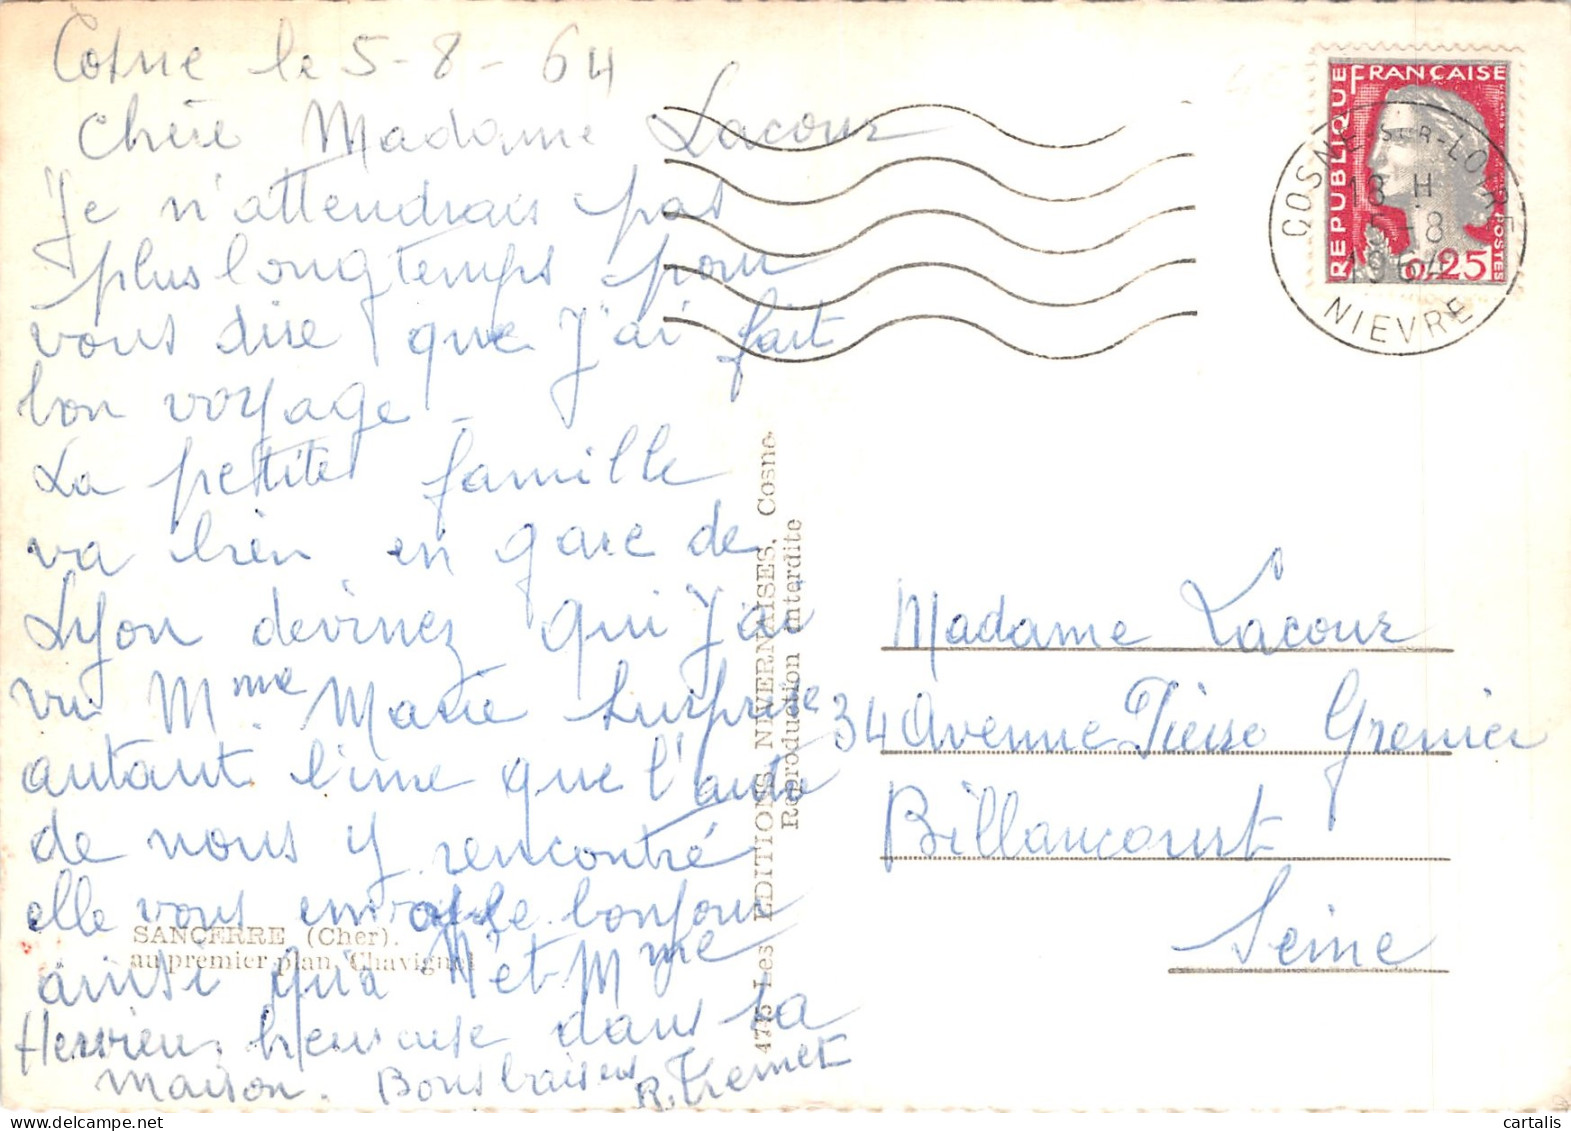 Cosne le 5-8-64
Chère Madame Lacour
Je n'attendrais pas
plus longtemps pour
vous dire que j'ai fait
bon voyage -
La petite famille
va bien en gare de
Lyon devinez qui j'ai
vu Mme Marie surprise
autant l'une que l'autre
de nous y rencontré
elle vous envoie le bonjour
ainsi qu'a M et Mme
heureuse dans sa
maison. Bons baisers
SANCERRE (Cher).
au premier plan, Chavignol
4775 Les EDITIONS NIVERNAISES, Cosne
Reproduction interdite
REPUBLIQUE FRANÇAISE
POSTES
0,25
COSNE-SUR-LOIRE
18 H
5-8
1964
NIEVRE
Madame Lacour
34 Avenue Pierre Grenier
Billancourt
Seine
cartalis